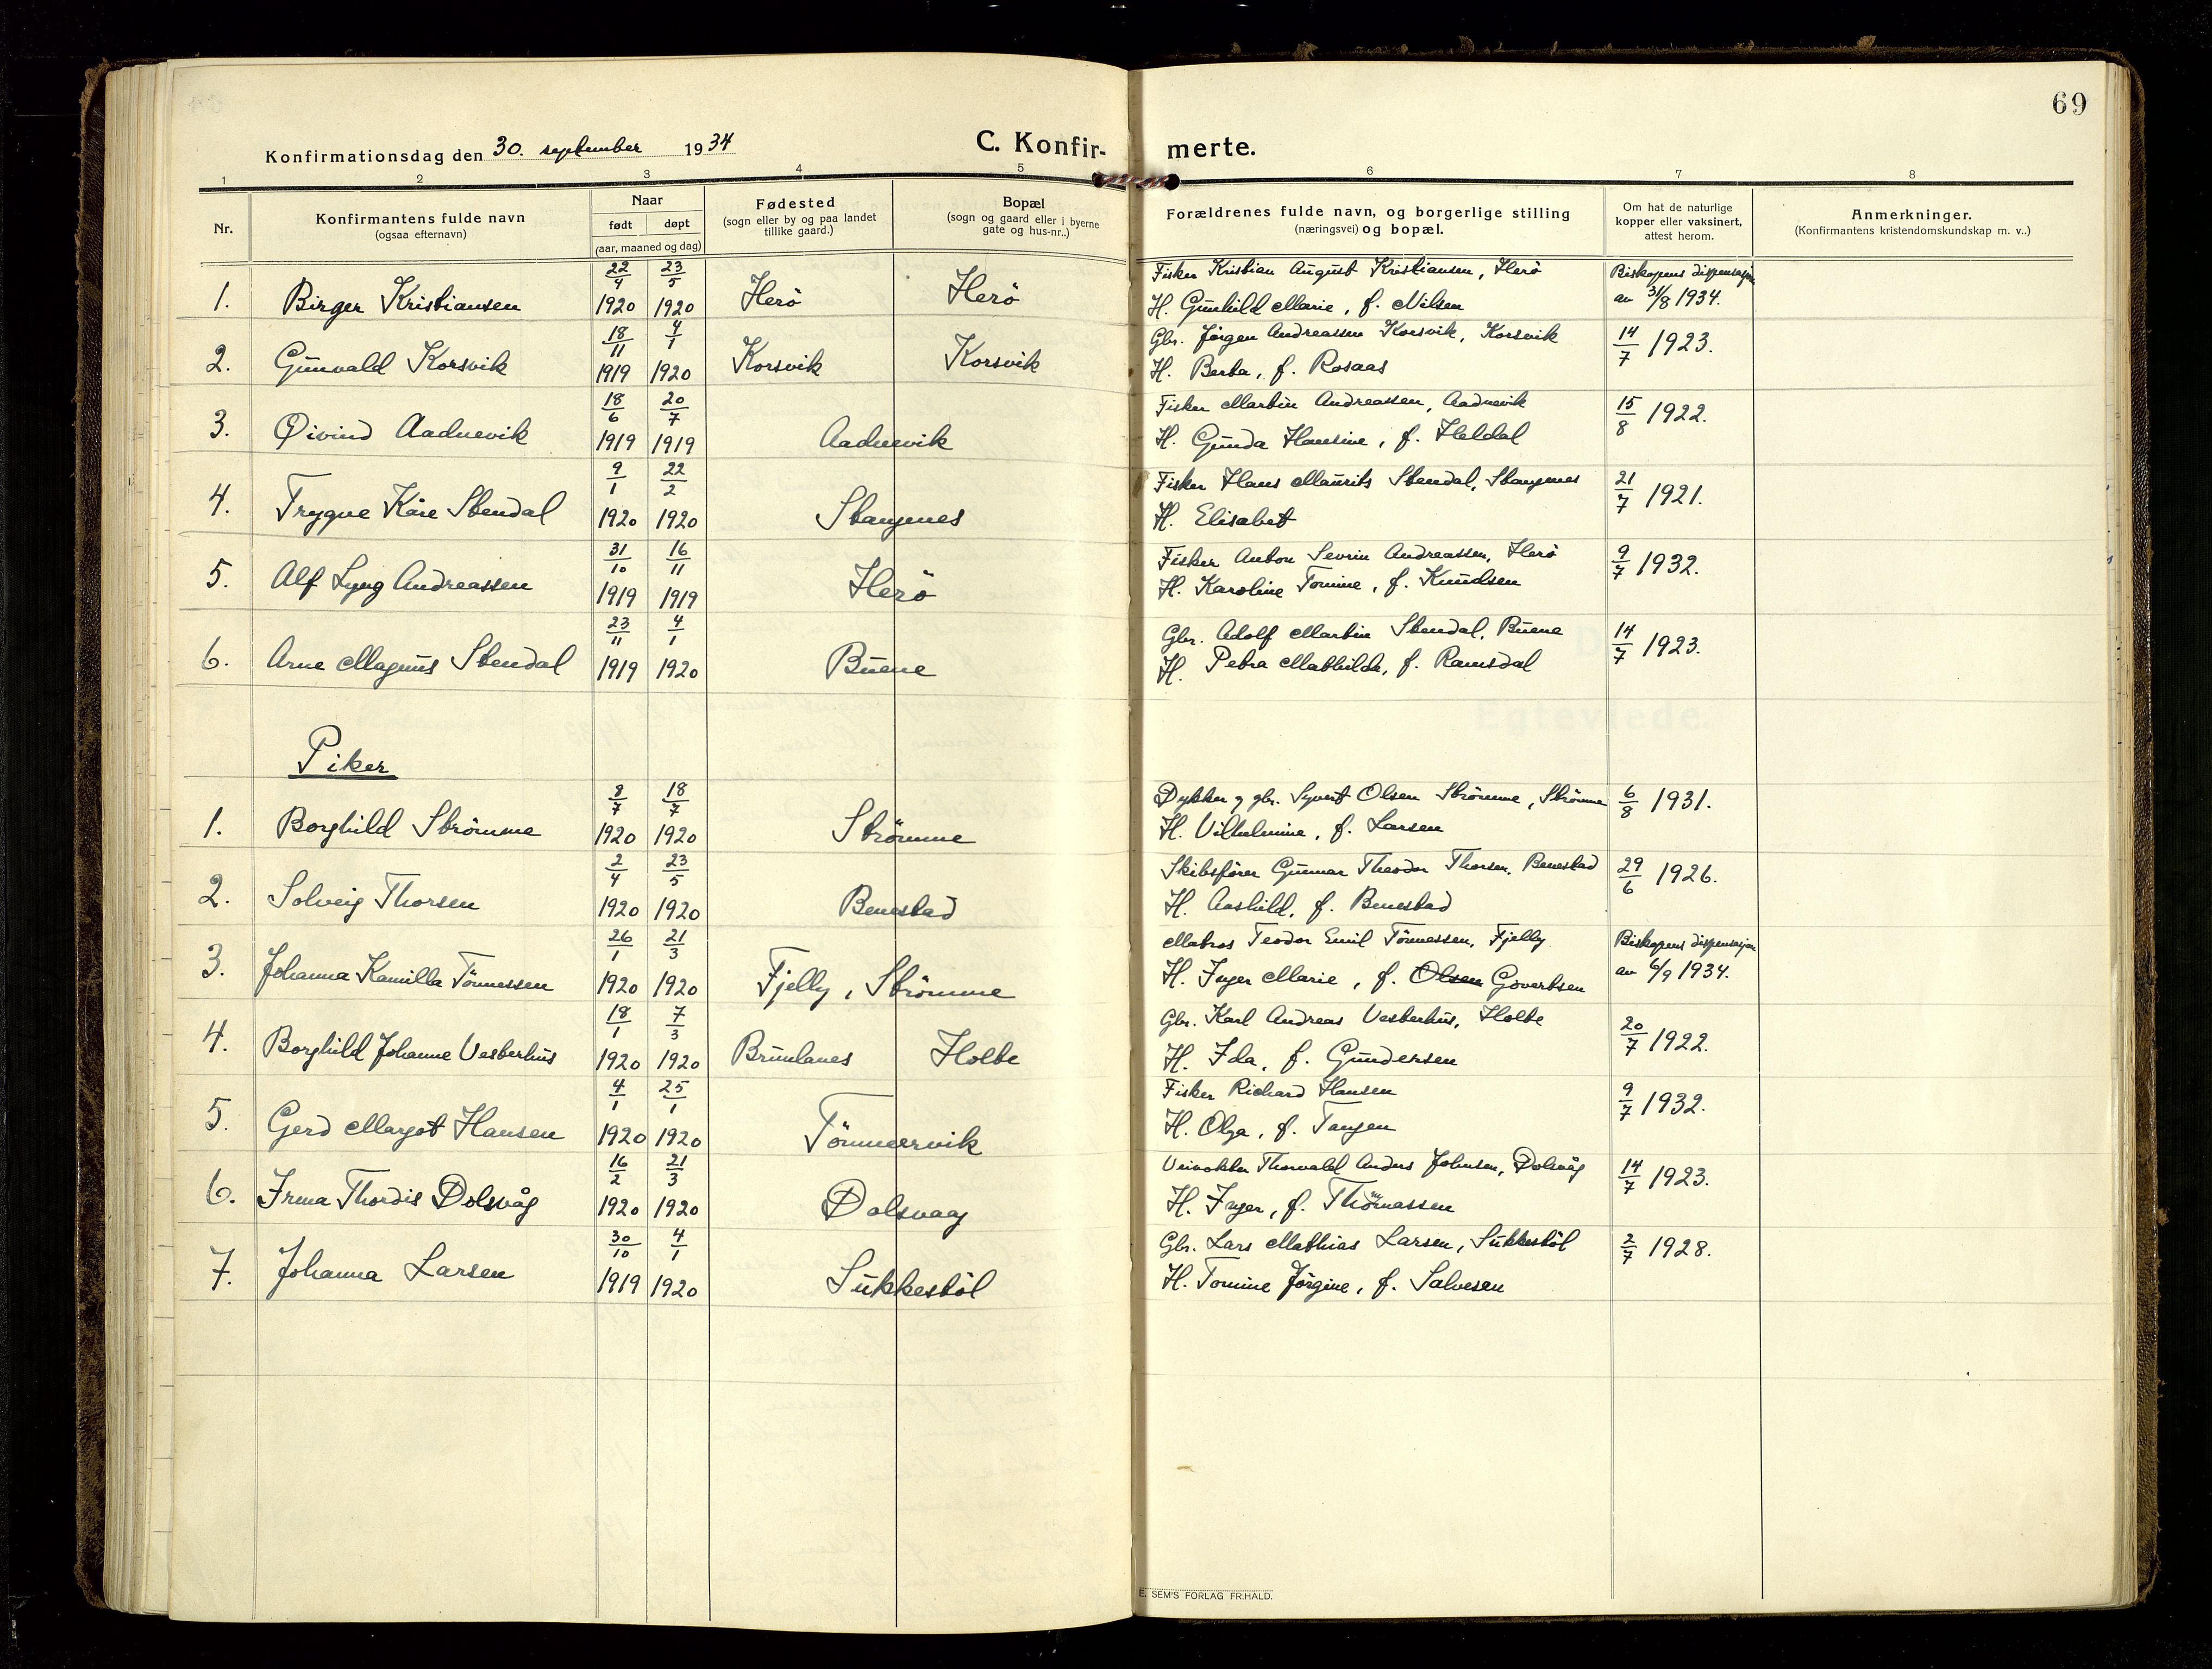 69
Konfirmationsdag den 30. september 1934
C. Konfir- merte.
1 2 3 4 5 6 7 8
Nr.
Konfirmantens fulde navn
(ogsaa efternavn)
Naar
født døpt
(aar, maaned og dag)
Fødested
(sogn eller by og paa landet
tillike gaard.)
Bopæl
(sogn og gaard eller i byerne
gate og hus-nr..)
Forældrenes fulde navn, og borgerlige stilling
(næringsvei) og bopæl.
Om hat de naturlige
kopper eller vaksinert,
attest herom.
Anmerkninger.
(Konfirmantens kristendomskundskap m. v..)
1. Birger Kristiansen 22/4 1920 23/5 1920 Herö Herö
Fisker Kristian August Kristiansen, Herö
H. Gunhild Marie, f. Nilsen
Biskopens dispensasjon
av 31/8 1934.
2. Gunvald Korsvik 18/11 1919 4/1 1920 Korsvik Korsvik
Gbr. Jörgen Andreassen Korsvik, Korsvik
H. Berta, f. Rosaas
14/7 1923.
3. Øivind Aadnevik 18/6 1919 20/7 1919 Aadnevik
Fisker Martin Andreassen, Aadnevik
H. Gunda Hansine, f. Heldal
15/8 1922.
4. Trygve Kåre Stendal 9/1 1920 22/2 1920 Stangenes
Fisker Hans Maurits Stendal, Stangenes
H. Elisabet
21/7 1921.
5. Alf Lyng Andreassen 31/10 1919 16/11 1919 Herö
Fisker Anton Sevrin Andreassen, Herö
H. Karoline Tomine, f. Knudsen
9/7 1932.
6. Arne Magnus Stendal 23/11 1919 4/1 1920 Buene
Gbr. Adolf Martin Stendal, Buene
H. Petra Mathilde, f. Ramsdal
14/7 1923.
Piker
1. Borghild Strömme 8/7 1920 18/7 1920 Strömme
Dykker og gbr. Syvert Olsen Strömme, Strömme
H. Vilhelmine, f. Larsen
6/8 1931.
2. Solveig Thorsen 2/4 1920 23/5 1920 Benestad
Skibsfører Gunnar Theodor Thorsen, Benestad
H. Aashild, f. Benestad
29/6 1926.
3. Johanna Kamilla Tönnessen 26/1 1920 21/3 1920 Fjelly, Strömme
Matros Teodor Emil Tönnessen, Fjelly
H. Inger Marie, f. Olsen Govertsen
Biskopens dispensasjon
av 6/9 1934.
4. Borghild Johanne Vesterhus 18/1 1920 7/3 1920 Brunlanes Holte
Gbr. Karl Andreas Vesterhus, Holte
H. Ida, f. Gundersen
20/7 1922.
5. Gerd Margot Hansen 4/1 1920 25/1 1920 Tömmervik
Fisker Richard Hansen
H. Olga, f. Tangen
9/7 1932.
6. Irma Thordis Dolsvåg 16/2 1920 21/3 1920 Dolsvaag
Veivokter Thorvald Anders Johnsen, Dolsvåg
H. Inger, f. Thömassen
14/7 1923.
7. Johanna Larsen 30/10 1919 4/1 1920 Sukkestöl
Gbr. Lars Mathias Larsen, Sukkestöl
H. Tomine Jörgine, f. Salvesen
2/7 1928.
E. SEM'S FORLAG FR.HALD.